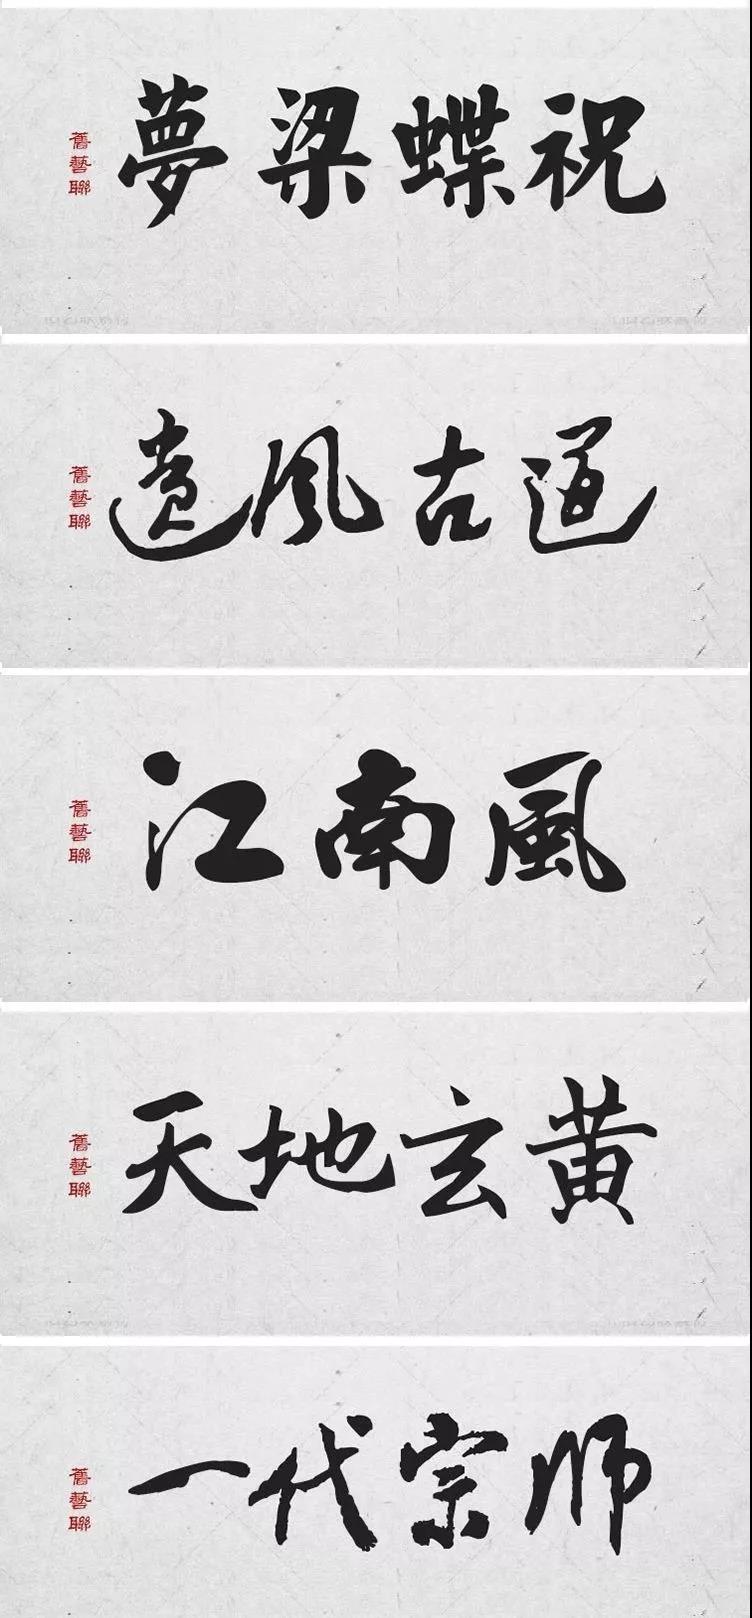 舊藝聯
夢梁蝶祝
舊藝聯
遺風古道
舊藝聯
江南風
舊藝聯
天地玄黄
舊藝聯
一代宗师